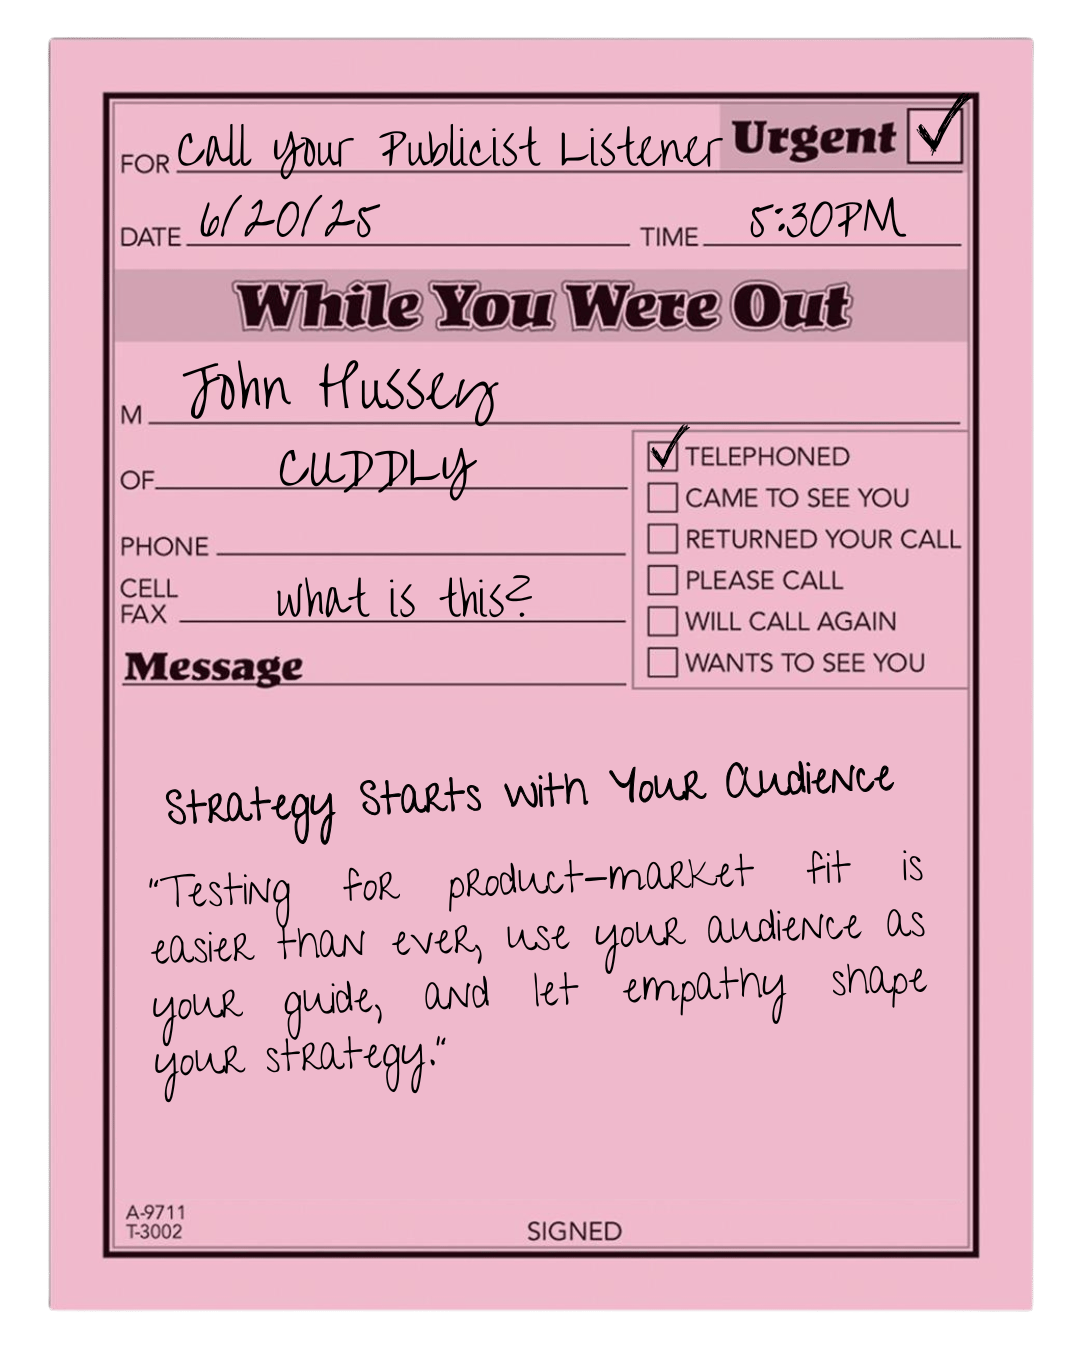 FOR Call your Publicist Listener Urgent
DATE 6/20/25 TIME 5:30PM
While You Were Out
M John Hussey
OF CUDDLY
TELEPHONED
CAME TO SEE YOU
RETURNED YOUR CALL
PLEASE CALL
WILL CALL AGAIN
WANTS TO SEE YOU
PHONE
CELL
FAX what is this?
Message
Strategy Starts with Your Audience
"Testing for product-market fit is
easier than ever, use your audience as
your guide, and let empathy shape
your strategy."
A-9711
T-3002
SIGNED